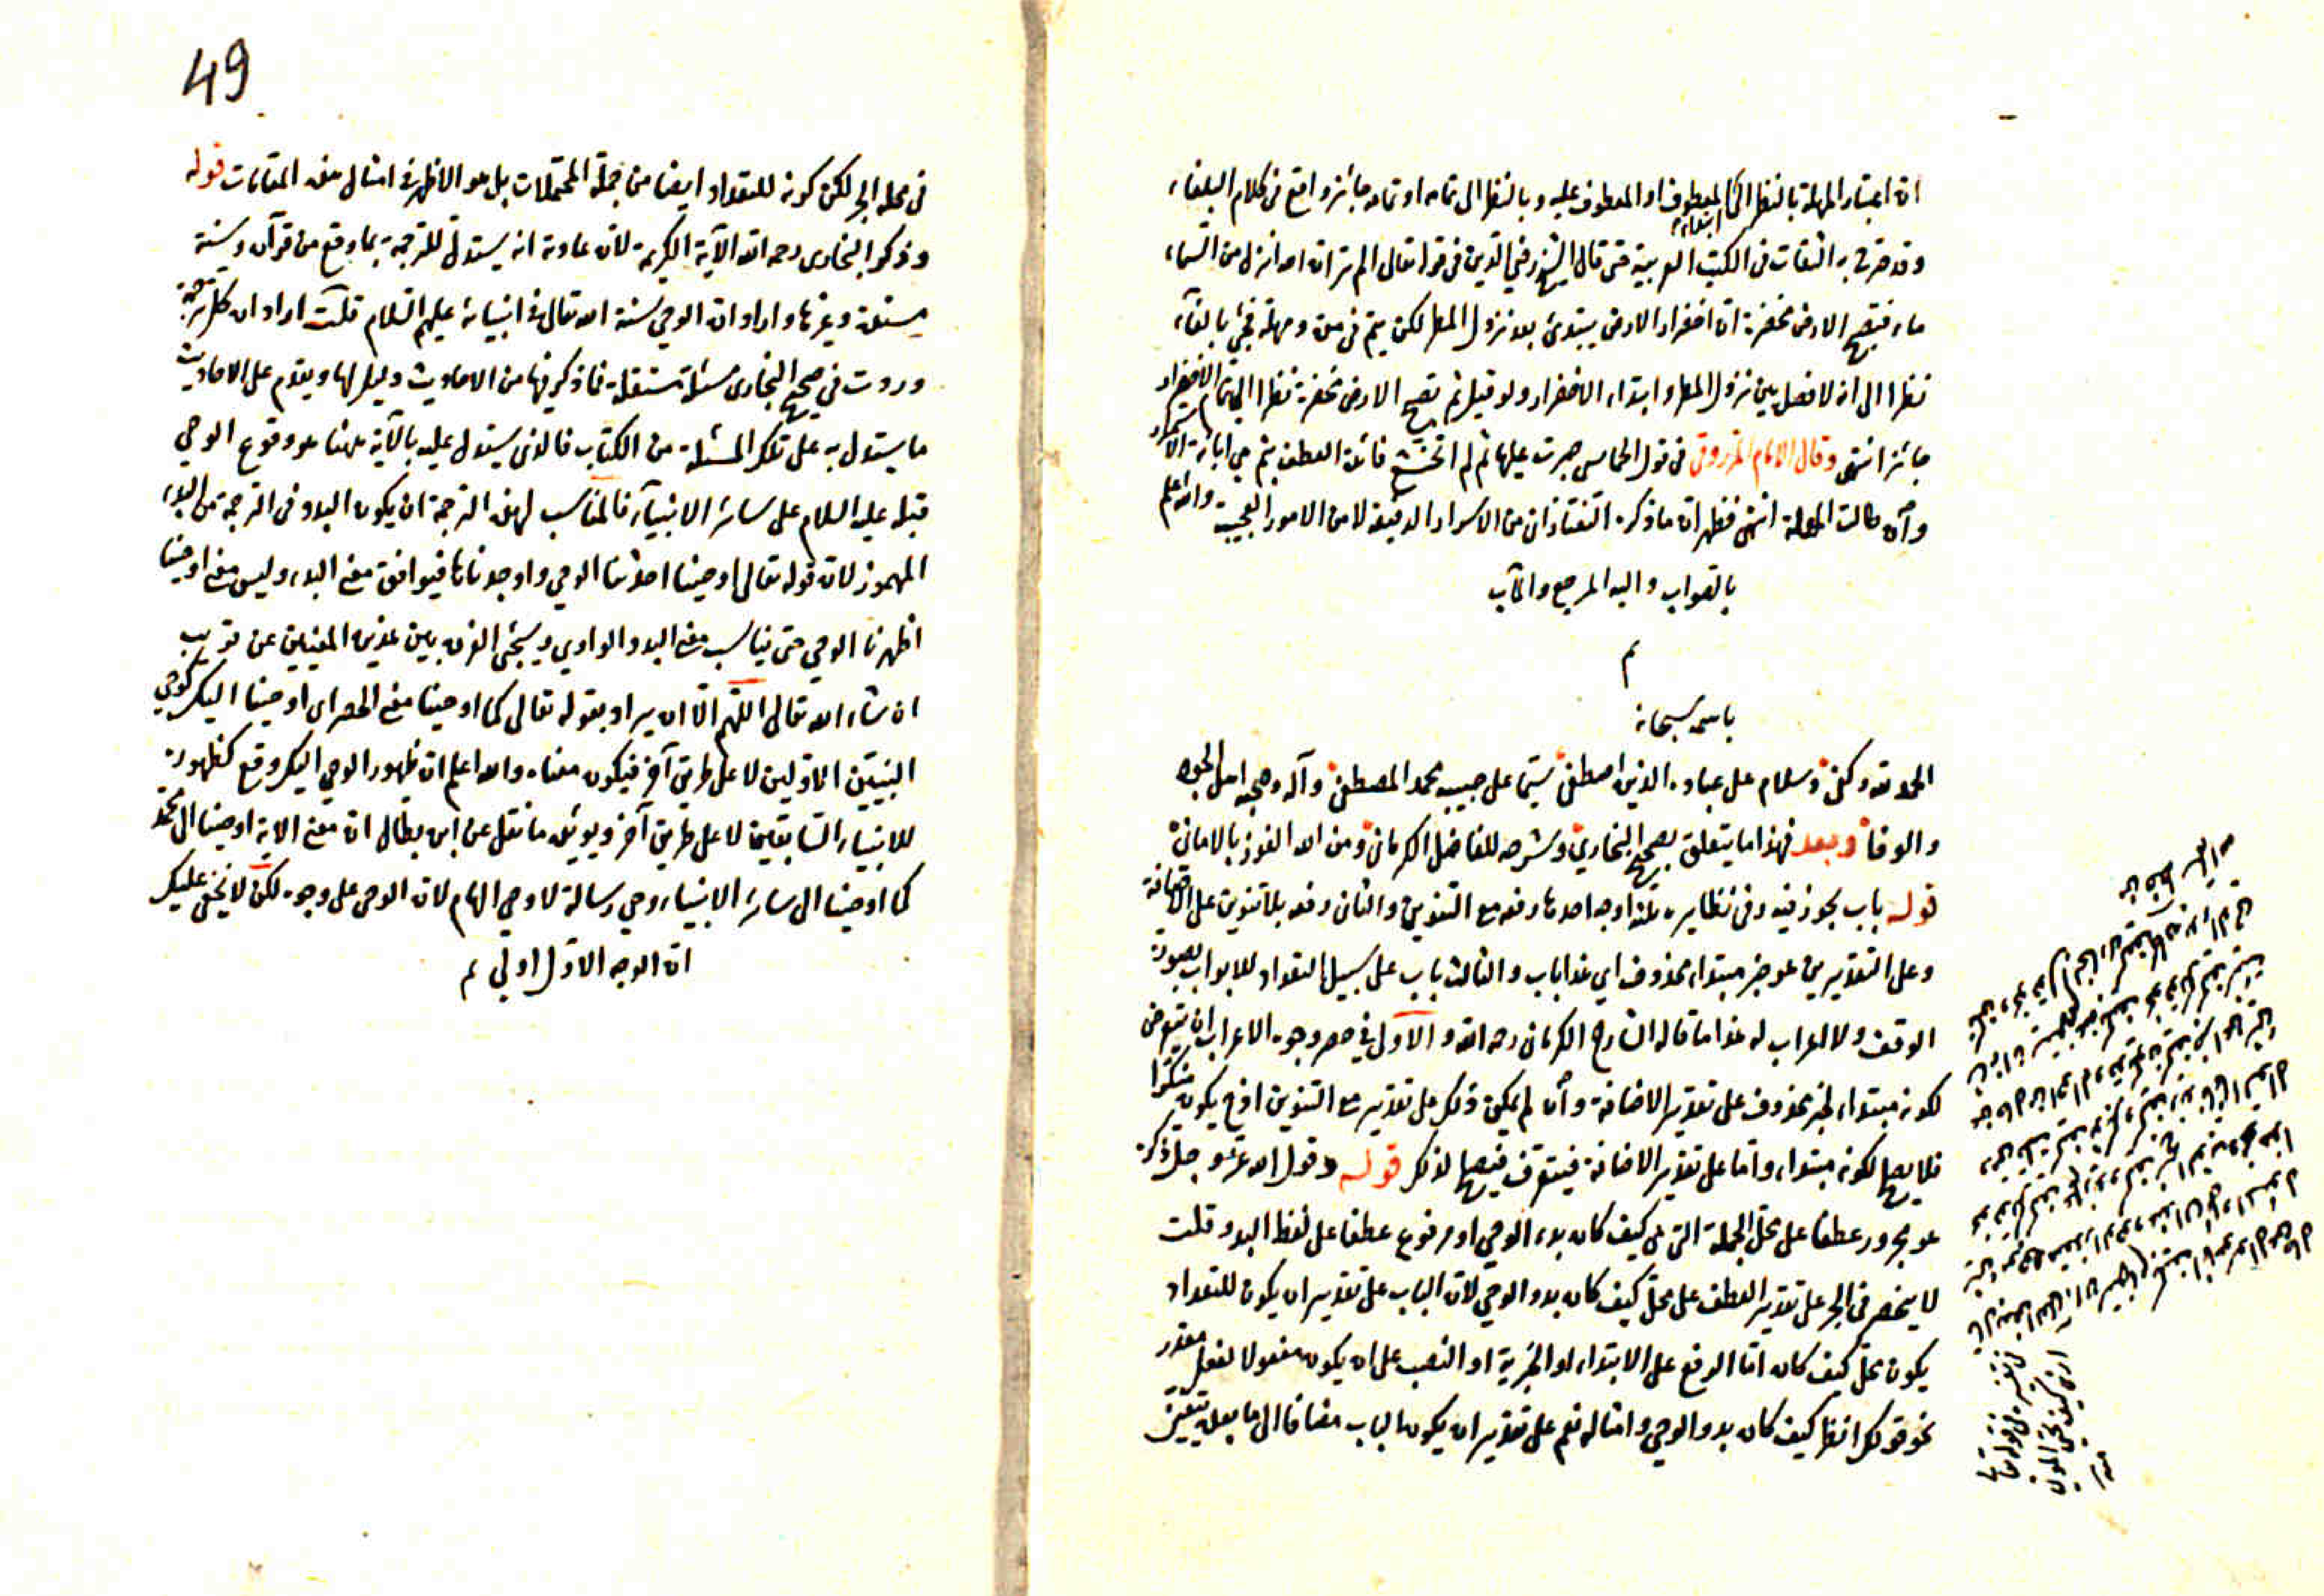 ان اعتبار المهلة بالنظر الى المعطوف او المعطوف عليه وبالنظر الى تمامه او تمامه جائز واقع فى كلام البلغاء
ابتدائه
وقد صرح به الثقات فى الكتب العربية حتى قال الشيخ رضي الدين فى قوله تعالى الم تر ان الله انزل من السماء
ماء فتصبح الارض مخضرة ان اخضرار الارض يبتدئ بعد نزول المطر لكن يتم فى مدة ومهلة فجئ بالفاء
نظرا الى انه لا فصل بين نزول المطر وابتداء الاخضرار ولو قيل ثم تصبح الارض مخضرة نظرا الى تمام الاخضرار
جائز انتهى وقال الامام المرزوقى فى قول الحماسى صبرت عليها ثم لم اتخشع فائدة العطف بثم هي ابانة الاستمرار
وان طالت المهلة انتهى فظهر ان ما ذكره التفتازانى من الاسرار الدقيقة لا من الامور العجيبة والله اعلم
بالصواب واليه المرجع والمآب
م
باسمه سبحانه
الحمد لله وكفى وسلام على عباده الذين اصطفى سيما على حبيبه محمد المصطفى وآله وصحبه اهل
والوفا وبعد فهذا ما يتعلق بصحيح البخاري وشرحه للفاضل الكرمانى ومن الله الفوز بالامانى
قوله باب يجوز فيه وفى نظايره ثلثة اوجه احدها رفعه مع التنوين والثانى رفعه بلا تنوين على الاضافة
وعلى التقديرين هو خبر مبتداء محذوف اي هذا باب والثالث باب على سبيل التعداد للابواب بصورة
الوقف ولا اعراب له هذا ما قاله الشارح الكرمانى رحمه الله والاولى فى حصر وجوه الاعراب ان يتعرض
لكونه مبتداء لخبر محذوف على تقدير الاضافة وان لم يمكن ذلك على تقدير مع التنوين اذ ح يكون منكرا
فلا يصلح لكونه مبتداء واما على تقدير الاضافة فيتعرف فيصلح لذلك قوله وقول الله عز وجل ذكره
هو مجرور عطفا على محل الجملة التى هى كيف كان بدء الوحي او مرفوع عطفا على لفظ البدو قلت
لا ينحصر فى الجر على تقدير العطف على محل كيف كان بدو الوحي لان الباب على تقدير ان يكون للتعداد
يكون محل كيف كان اما الرفع على الابتداء او الخبرية او النصب على ان يكون مفعولا لفعل مقدر
نحو قولك انظر كيف كان بدو الوحي وامثاله نعم على تقدير ان يكون الباب مضافا الى ما بعده يتعين
49
فى محله الجر لكن كونه للتعداد ايضا من جملة المحتملات بل هو الاظهر فى امثال هذه المقامات قوله
وذكر البخارى رحمه الله الآية الكريمة لان عادته ان يستدل للترجمة بما وقع من قرآن وسنة
مسندة وغيرها واراد ان الوحي سنة الله تعالى فى انبيائه عليهم السلام قلت اراد ان كل ترجمة
وردت فى صحيح البخارى مسئلة مستقلة فما ذكر فيها من الاحاديث دليل لها ويقدم على الاحاديث
ما يستدل به على تلك المسئلة من الكتاب فالذى يستدل عليه بالآية ههنا هو وقوع الوحي
قبله عليه السلام على سائر الانبياء فالمناسب لهذه الترجمة ان يكون البدو فى الترجمة من البدء
المهموز لان قوله تعالى اوحينا احدثنا الوحي واوجدناها فيوافق معنى البدء وليس معنى اوحينا
اظهرنا الوحي حتى يناسب معنى البدو الواوي وسيجئ الفرق بين هذين المعنيين عن قريب
ان شاء الله تعالى اللهم الا ان يراد بقوله تعالى كما اوحينا معنى الحصر اى اوحينا اليك كوحي
النبيين الاولين لا على طريق آخر فيكون معناه والله اعلم ان ظهور الوحي اليك وقع كظهوره
للانبياء السابقين لا على طريق آخر ويؤيده ما نقل عن ابن بطال ان معنى الاية اوحينا الى محمد
كما اوحينا الى سائر الانبياء وحي رسالة لا وحي الهام لان الوحى على وجوه لكن لا يخفى عليك
ان الوجه الاول اولى م